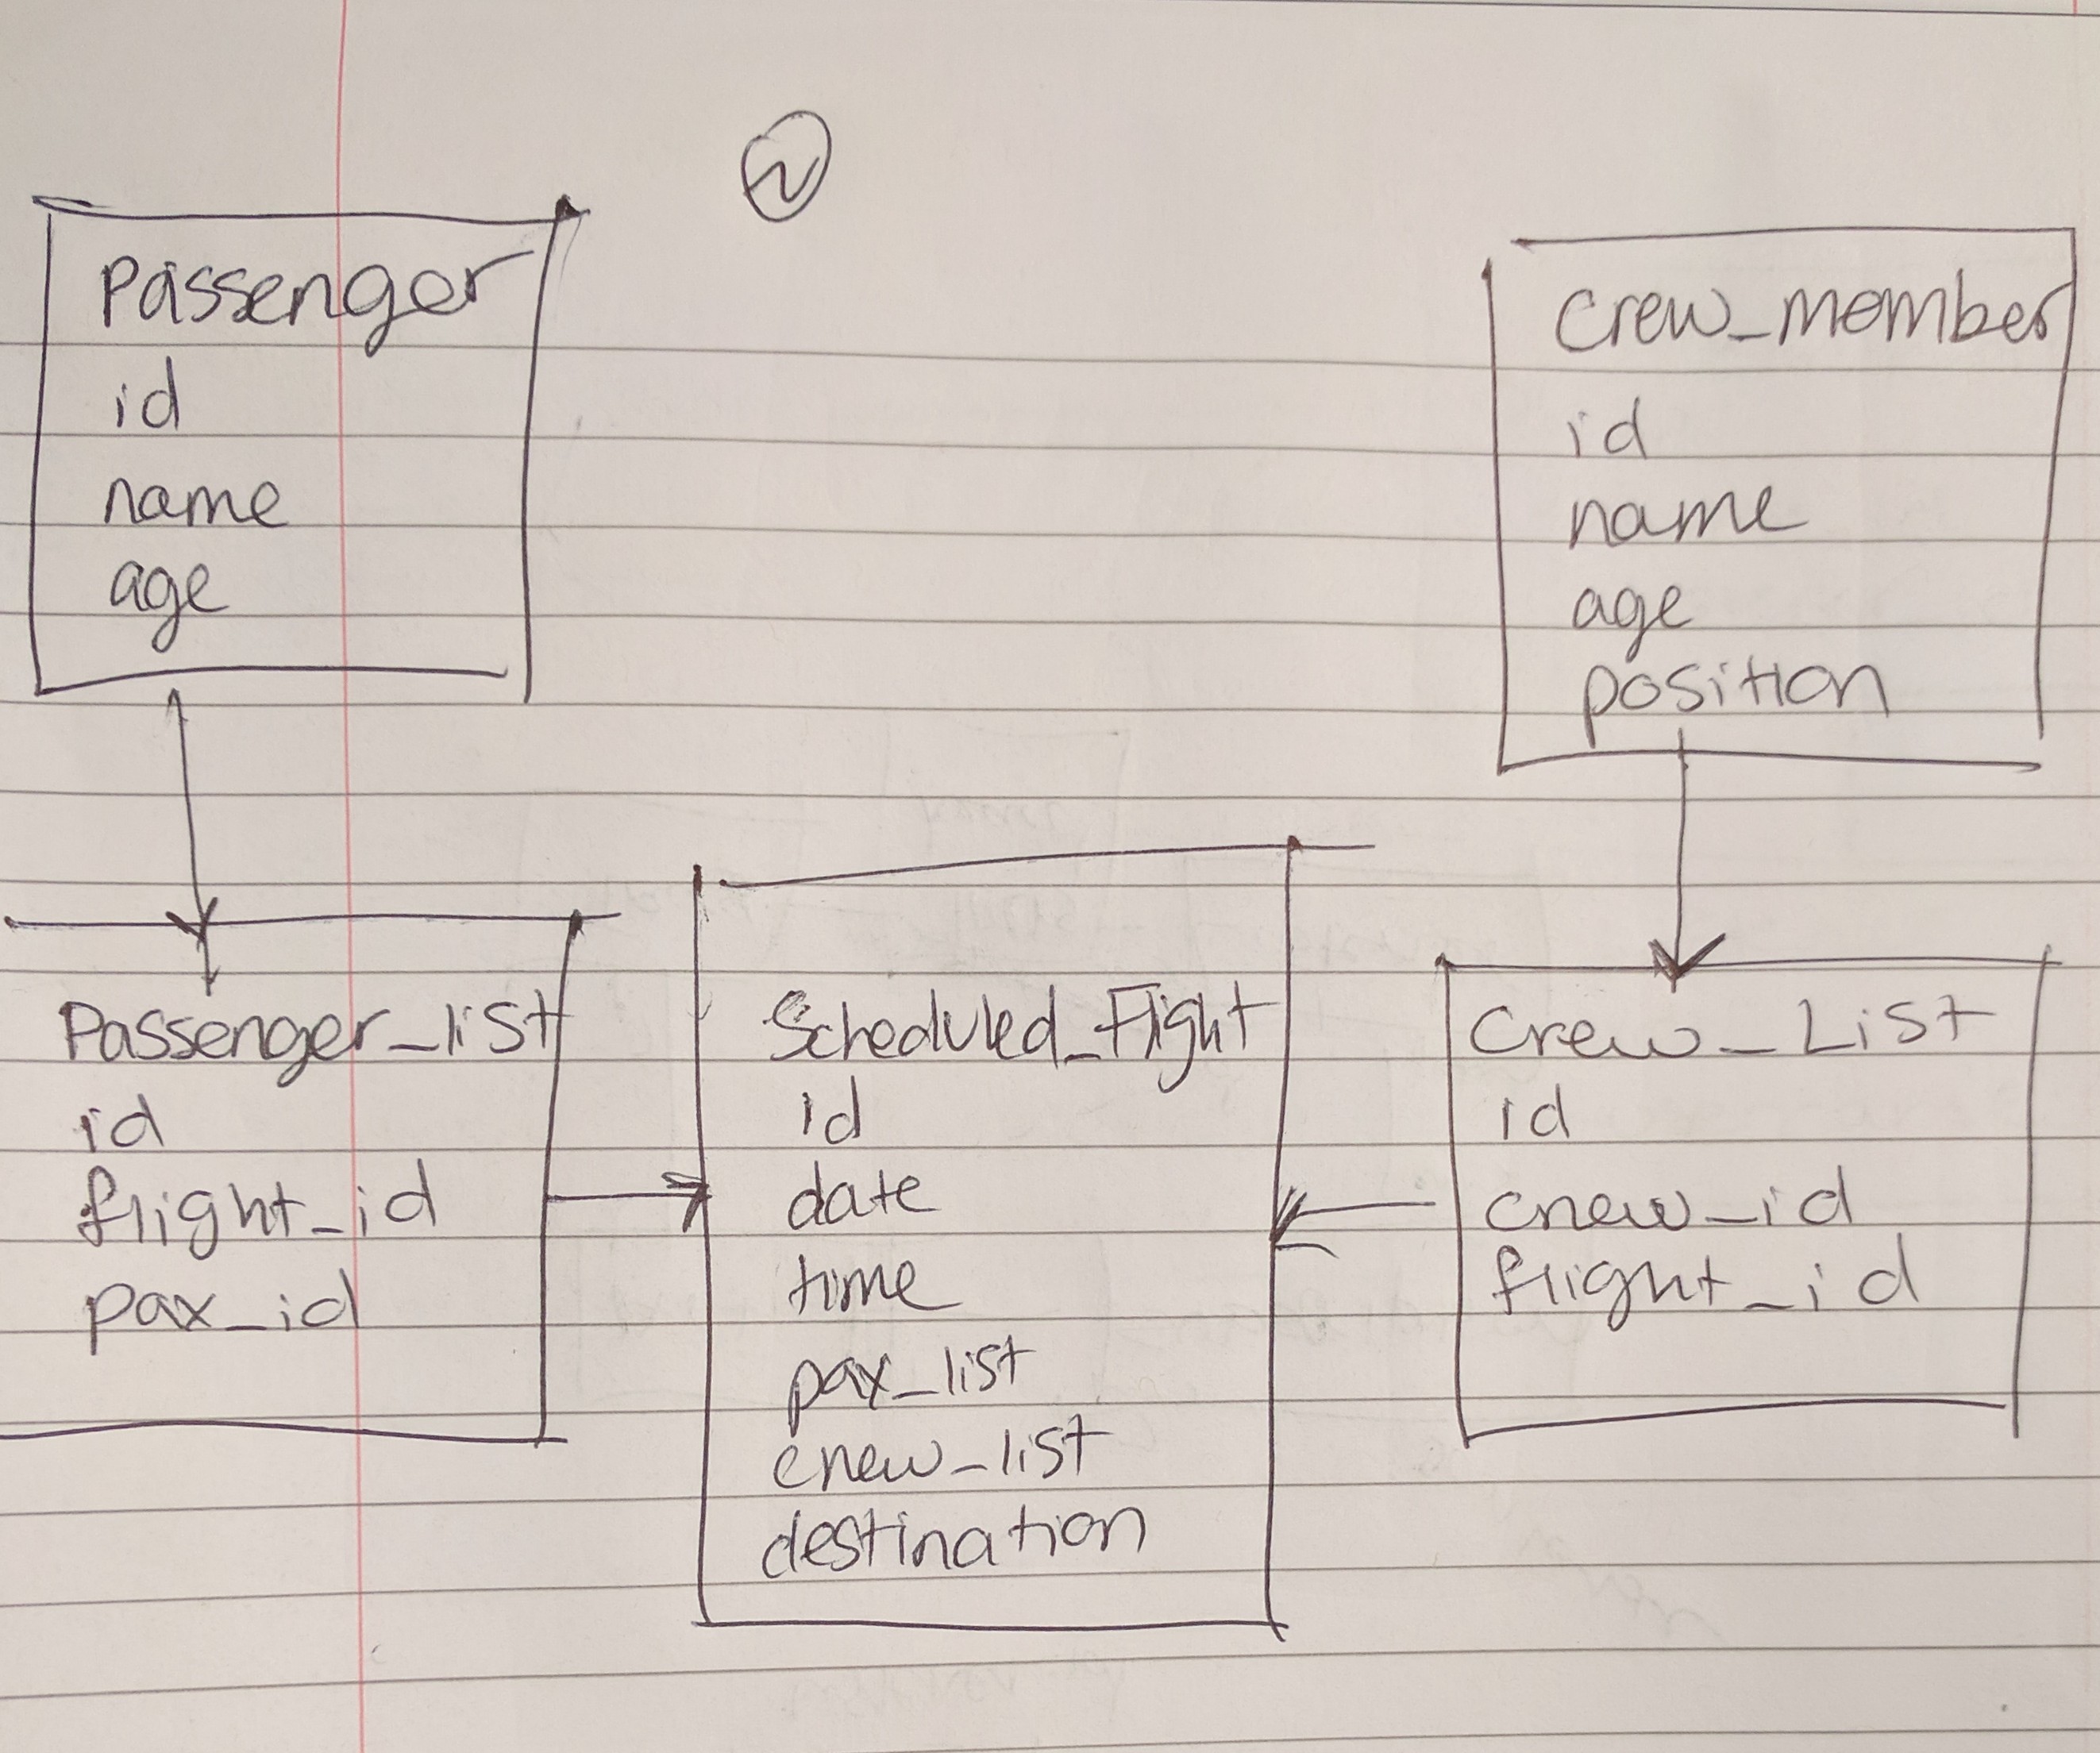 2
Passenger
id
name
age
Crew_member
id
name
age
position
Passenger_list
id
flight_id
pax_id
Scheduled_Flight
id
date
time
pax_list
crew_list
destination
Crew_List
id
crew_id
flight_id